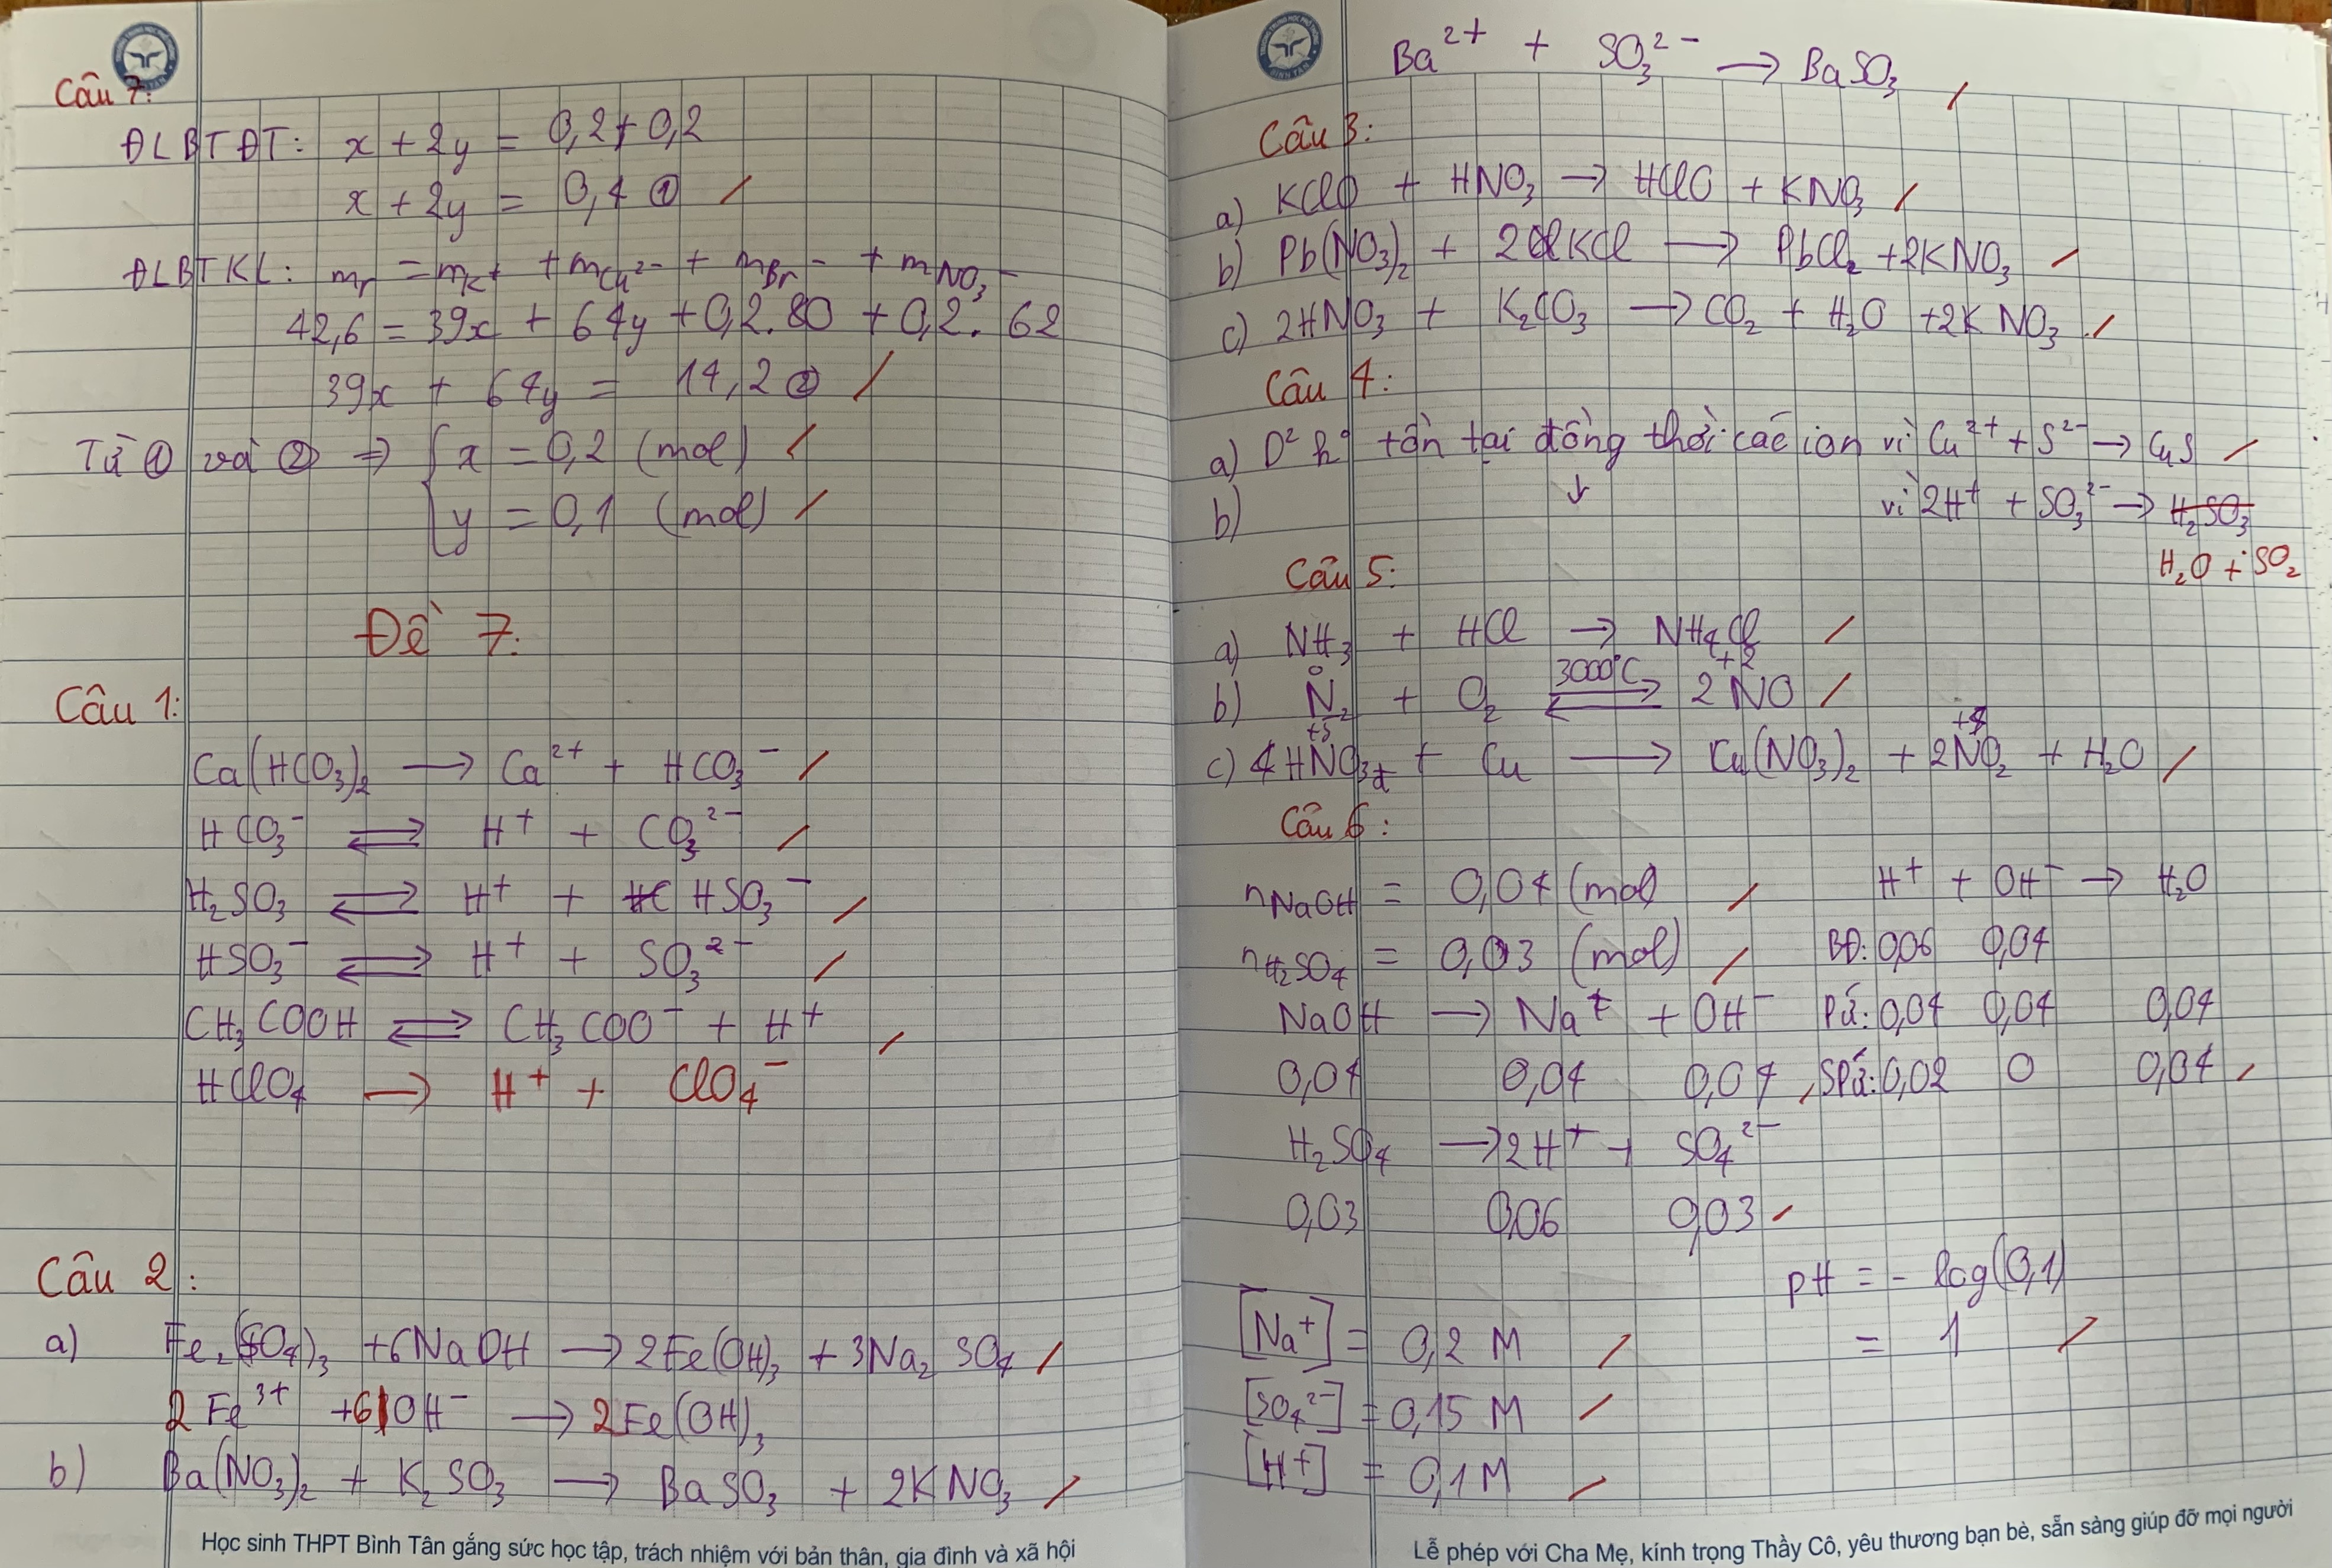 Câu 7:
ĐLBTĐT: x + 2y = 0,2 + 0,2
x + 2y = 0,4 ①
ĐLBTKL: mr = mK+ + mCu2- + mBr- + mNO3-
42,6 = 39x + 64y + 0,2.80 + 0,2.62
39x + 64y = 14,2 ②
Từ ① và ② ⇒ { x = 0,2 (mol)
y = 0,1 (mol)
Đề 7:
Câu 1:
Ca(HCO3)2 → Ca2+ + HCO3-
HCO3- ⇌ H+ + CO3 2-
H2SO3 ⇌ H+ + HSO3-
HSO3- ⇌ H+ + SO3 2-
CH3COOH ⇌ CH3COO- + H+
HClO4 → H+ + ClO4-
Câu 2:
a) Fe2(SO4)3 + 6NaOH → 2Fe(OH)3 + 3Na2SO4
2Fe3+ + 6OH- → 2Fe(OH)3
b) Ba(NO3)2 + K2SO3 → BaSO3 + 2KNO3
Học sinh THPT Bình Tân gắng sức học tập, trách nhiệm với bản thân, gia đình và xã hội
Ba2+ + SO3 2- → BaSO3
Câu 3:
a) KClO + HNO3 → HClO + KNO3
b) Pb(NO3)2 + 2KCl → PbCl2 + 2KNO3
c) 2HNO3 + K2CO3 → CO2 + H2O + 2KNO3
Câu 4:
a) D2 k0 tồn tại đồng thời các ion vì Cu2+ + S2- → CuS
b) ↓ vì 2H+ + SO3 2- → H2SO3
H2O + SO2
Câu 5:
a) NH3 + HCl → NH4Cl
0 +2
b) N2 + O2 ⇌ 3000°C 2NO
+5 +4
c) 4HNO3đ + Cu → Cu(NO3)2 + 2NO2 + H2O
Câu 6:
nNaOH = 0,04 (mol) H+ + OH- → H2O
nH2SO4 = 0,03 (mol) BĐ: 0,06 0,04
NaOH → Na+ + OH- PƯ: 0,04 0,04 0,04
0,04 0,04 0,04 SPƯ: 0,02 0 0,04
H2SO4 → 2H+ + SO4 2-
0,03 0,06 0,03
pH = -log(0,1)
= 1
[Na+] = 0,2 M
[SO4 2-] = 0,15 M
[H+] = 0,1 M
Lễ phép với Cha Mẹ, kính trọng Thầy Cô, yêu thương bạn bè, sẵn sàng giúp đỡ mọi người